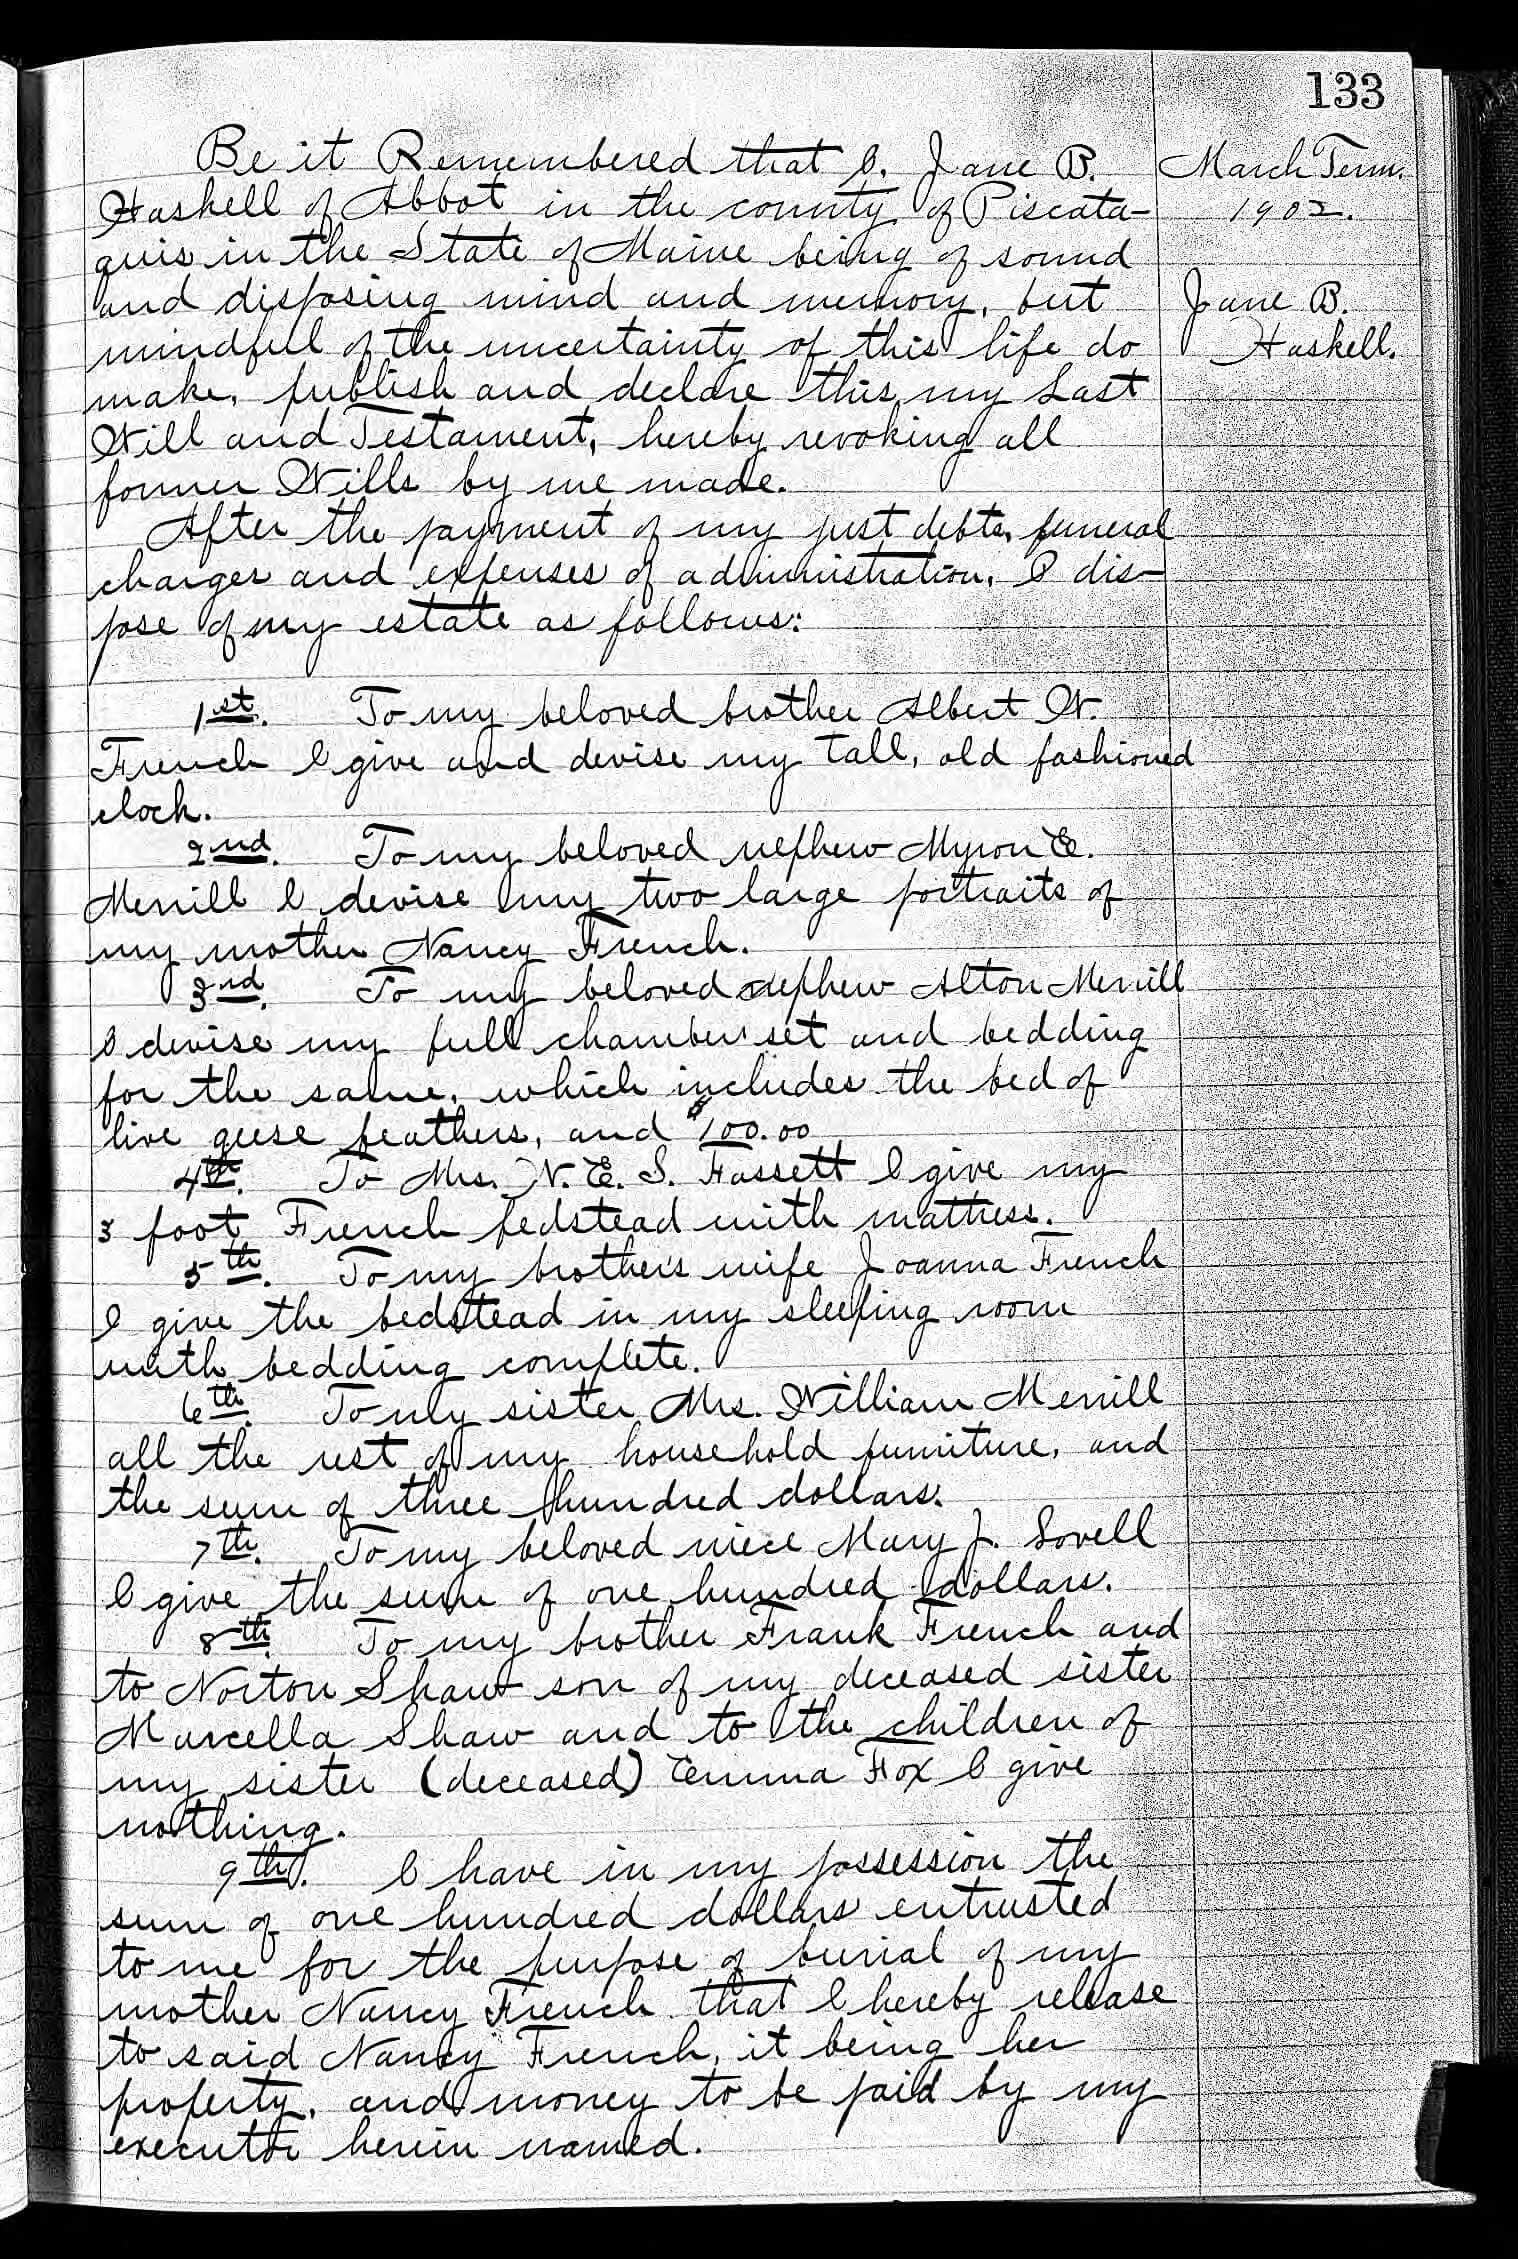 133
March Term.
1902.
Jane B.
Haskell.
Be it Remembered that I, Jane B.
Haskell of Abbot in the county of Piscata-
quis in the State of Maine being of sound
and disposing mind and memory, but
mindful of the uncertainty of this life do
make, publish and declare this my Last
Will and Testament, hereby revoking all
former Wills by me made.
After the payment of my just debts, funeral
charges and expenses of administration, I dis-
pose of my estate as follows:
1st. To my beloved brother Albert W.
French I give and devise my tall, old fashioned
clock.
2nd. To my beloved nephew Myron E.
Merrill I devise my two large portraits of
my mother Nancy French.
3nd. To my beloved nephew Alton Merrill
I devise my full chamber set and bedding
for the same, which includes the bed of
live geese feathers, and $100.00
4th. To Mrs. N. E. S. Fassett I give my
3 foot French bedstead with mattress.
5th. To my brother's wife Joanna French
I give the bedstead in my sleeping room
with bedding complete.
6th. To my sister Mrs. William Merrill
all the rest of my household furniture, and
the sum of three hundred dollars.
7th. To my beloved niece Mary J. Lovell
I give the sum of one hundred dollars.
8th. To my brother Frank French and
to Norton Shaw son of my deceased sister
Marcella Shaw and to the children of
my sister (deceased) Emma Fox I give
nothing.
9th. I have in my possession the
sum of one hundred dollars entrusted
to me for the purpose of burial of my
mother Nancy French that I hereby release
to said Nancy French, it being her
property, and money to be paid by my
executor herein named.